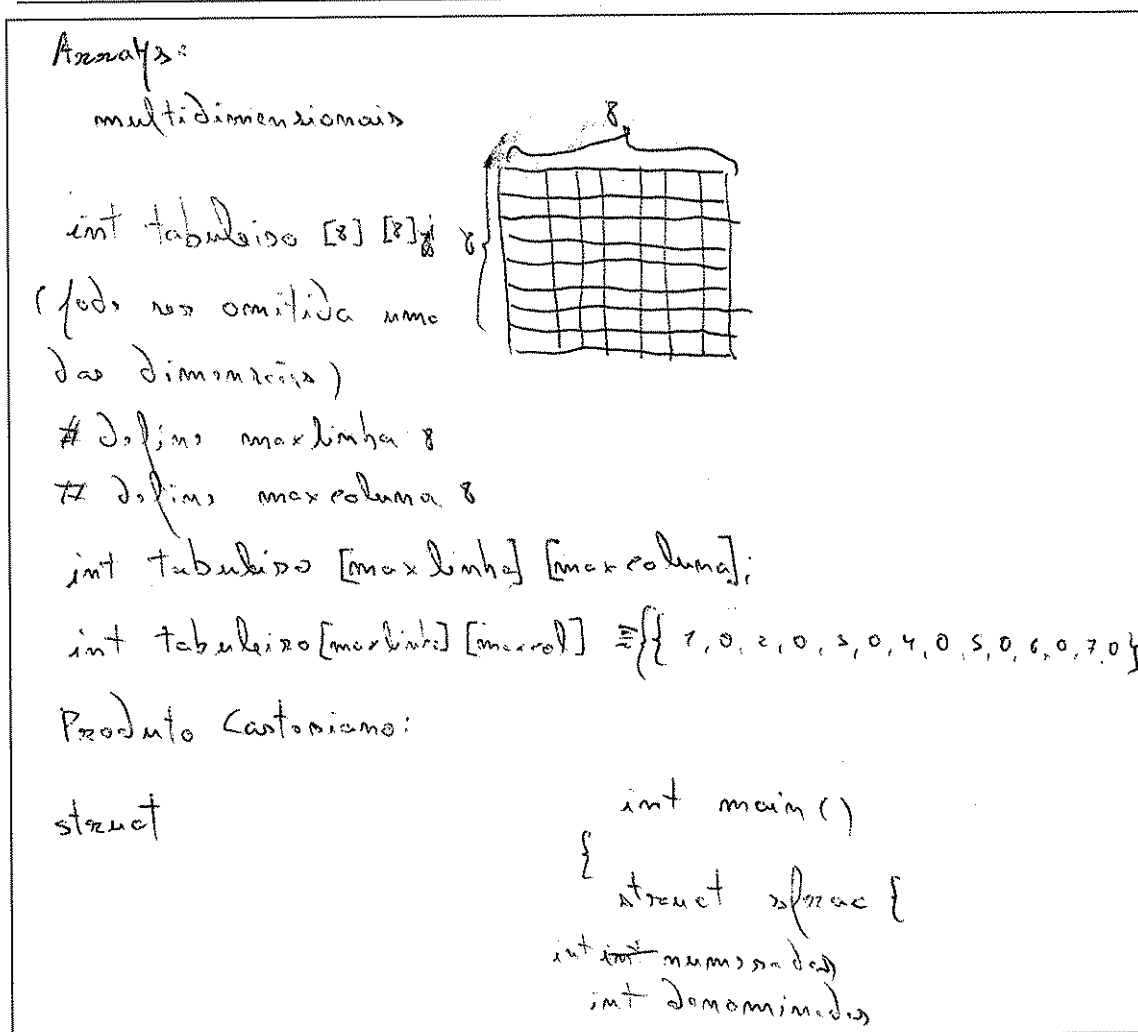 Arrays:
multidimensionais
8
int tabuleiro [8] [8]; 8
(pode ser omitida uma
das dimensões)
# define maxlinha 8
# define maxcoluna 8
int tabuleiro [maxlinha] [maxcoluna];
int tabuleiro [maxlinha] [maxcol] = {{ 1, 0, 2, 0, 3, 0, 4, 0, 5, 0, 6, 0, 7, 0}
Produto Cartesiano:
struct
int main ()
{
struct sfrac {
int int numerador
int denominador